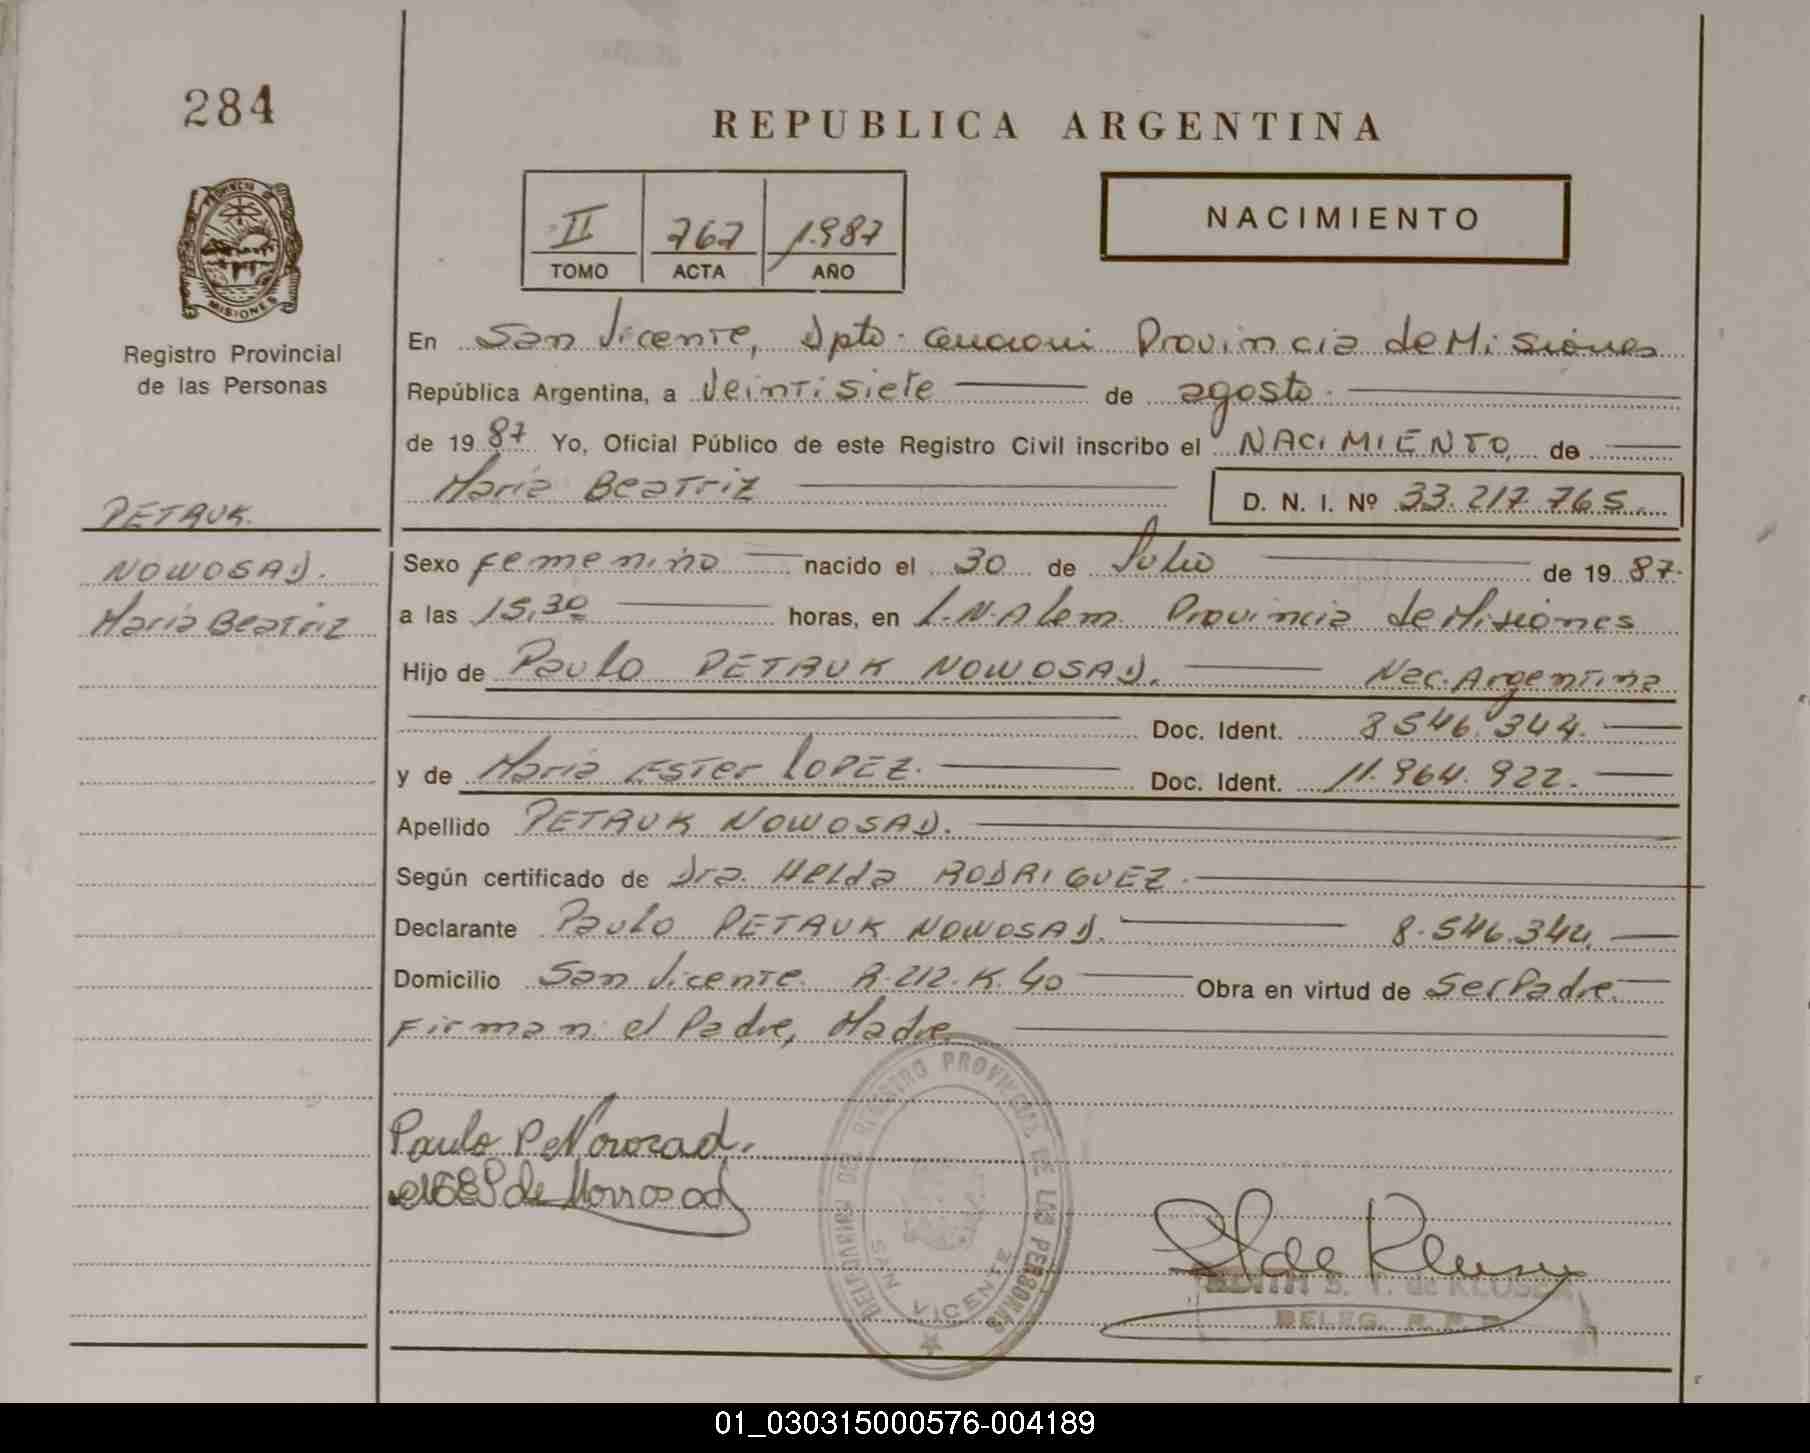 284
REPUBLICA ARGENTINA
PROVINCIA DE
MISIONES
Registro Provincial
de las Personas
II 767 1.987
TOMO ACTA AÑO
NACIMIENTO
En San Vicente, Dpto. Guarani Provincia de Misiones
República Argentina, a Veintisiete de agosto.
de 1987. Yo, Oficial Público de este Registro Civil inscribo el NACIMIENTO de
Maria Beatriz
D. N. I. Nº 33.217.765.
PETRUK
NOWOSAD.
Maria Beatriz
Sexo Femenino nacido el 30 de Julio de 1987.
a las 15,30 horas, en L.N.Alem Provincia de Misiones
Hijo de Paulo PETRUK NOWOSAD. Nac. Argentina
Doc. Ident. 8.546.344.
y de Maria Ester LOPEZ. Doc. Ident. 11.964.922.
Apellido PETRUK NOWOSAD.
Según certificado de Dra. Helda RODRIGUEZ.
Declarante Paulo PETRUK NOWOSAD. 8.546.344.
Domicilio San Vicente. R.212.K.40 Obra en virtud de Ser Padre.
Firman: el Padre, Madre.
Paulo P Novosad.
de
DELEGACION DEL REGISTRO PROVINCIAL DE LAS PERSONAS
SAN VICENTE
EDITH S. T. de KLUSEN
DELEG. R.P.P.
01_030315000576-004189